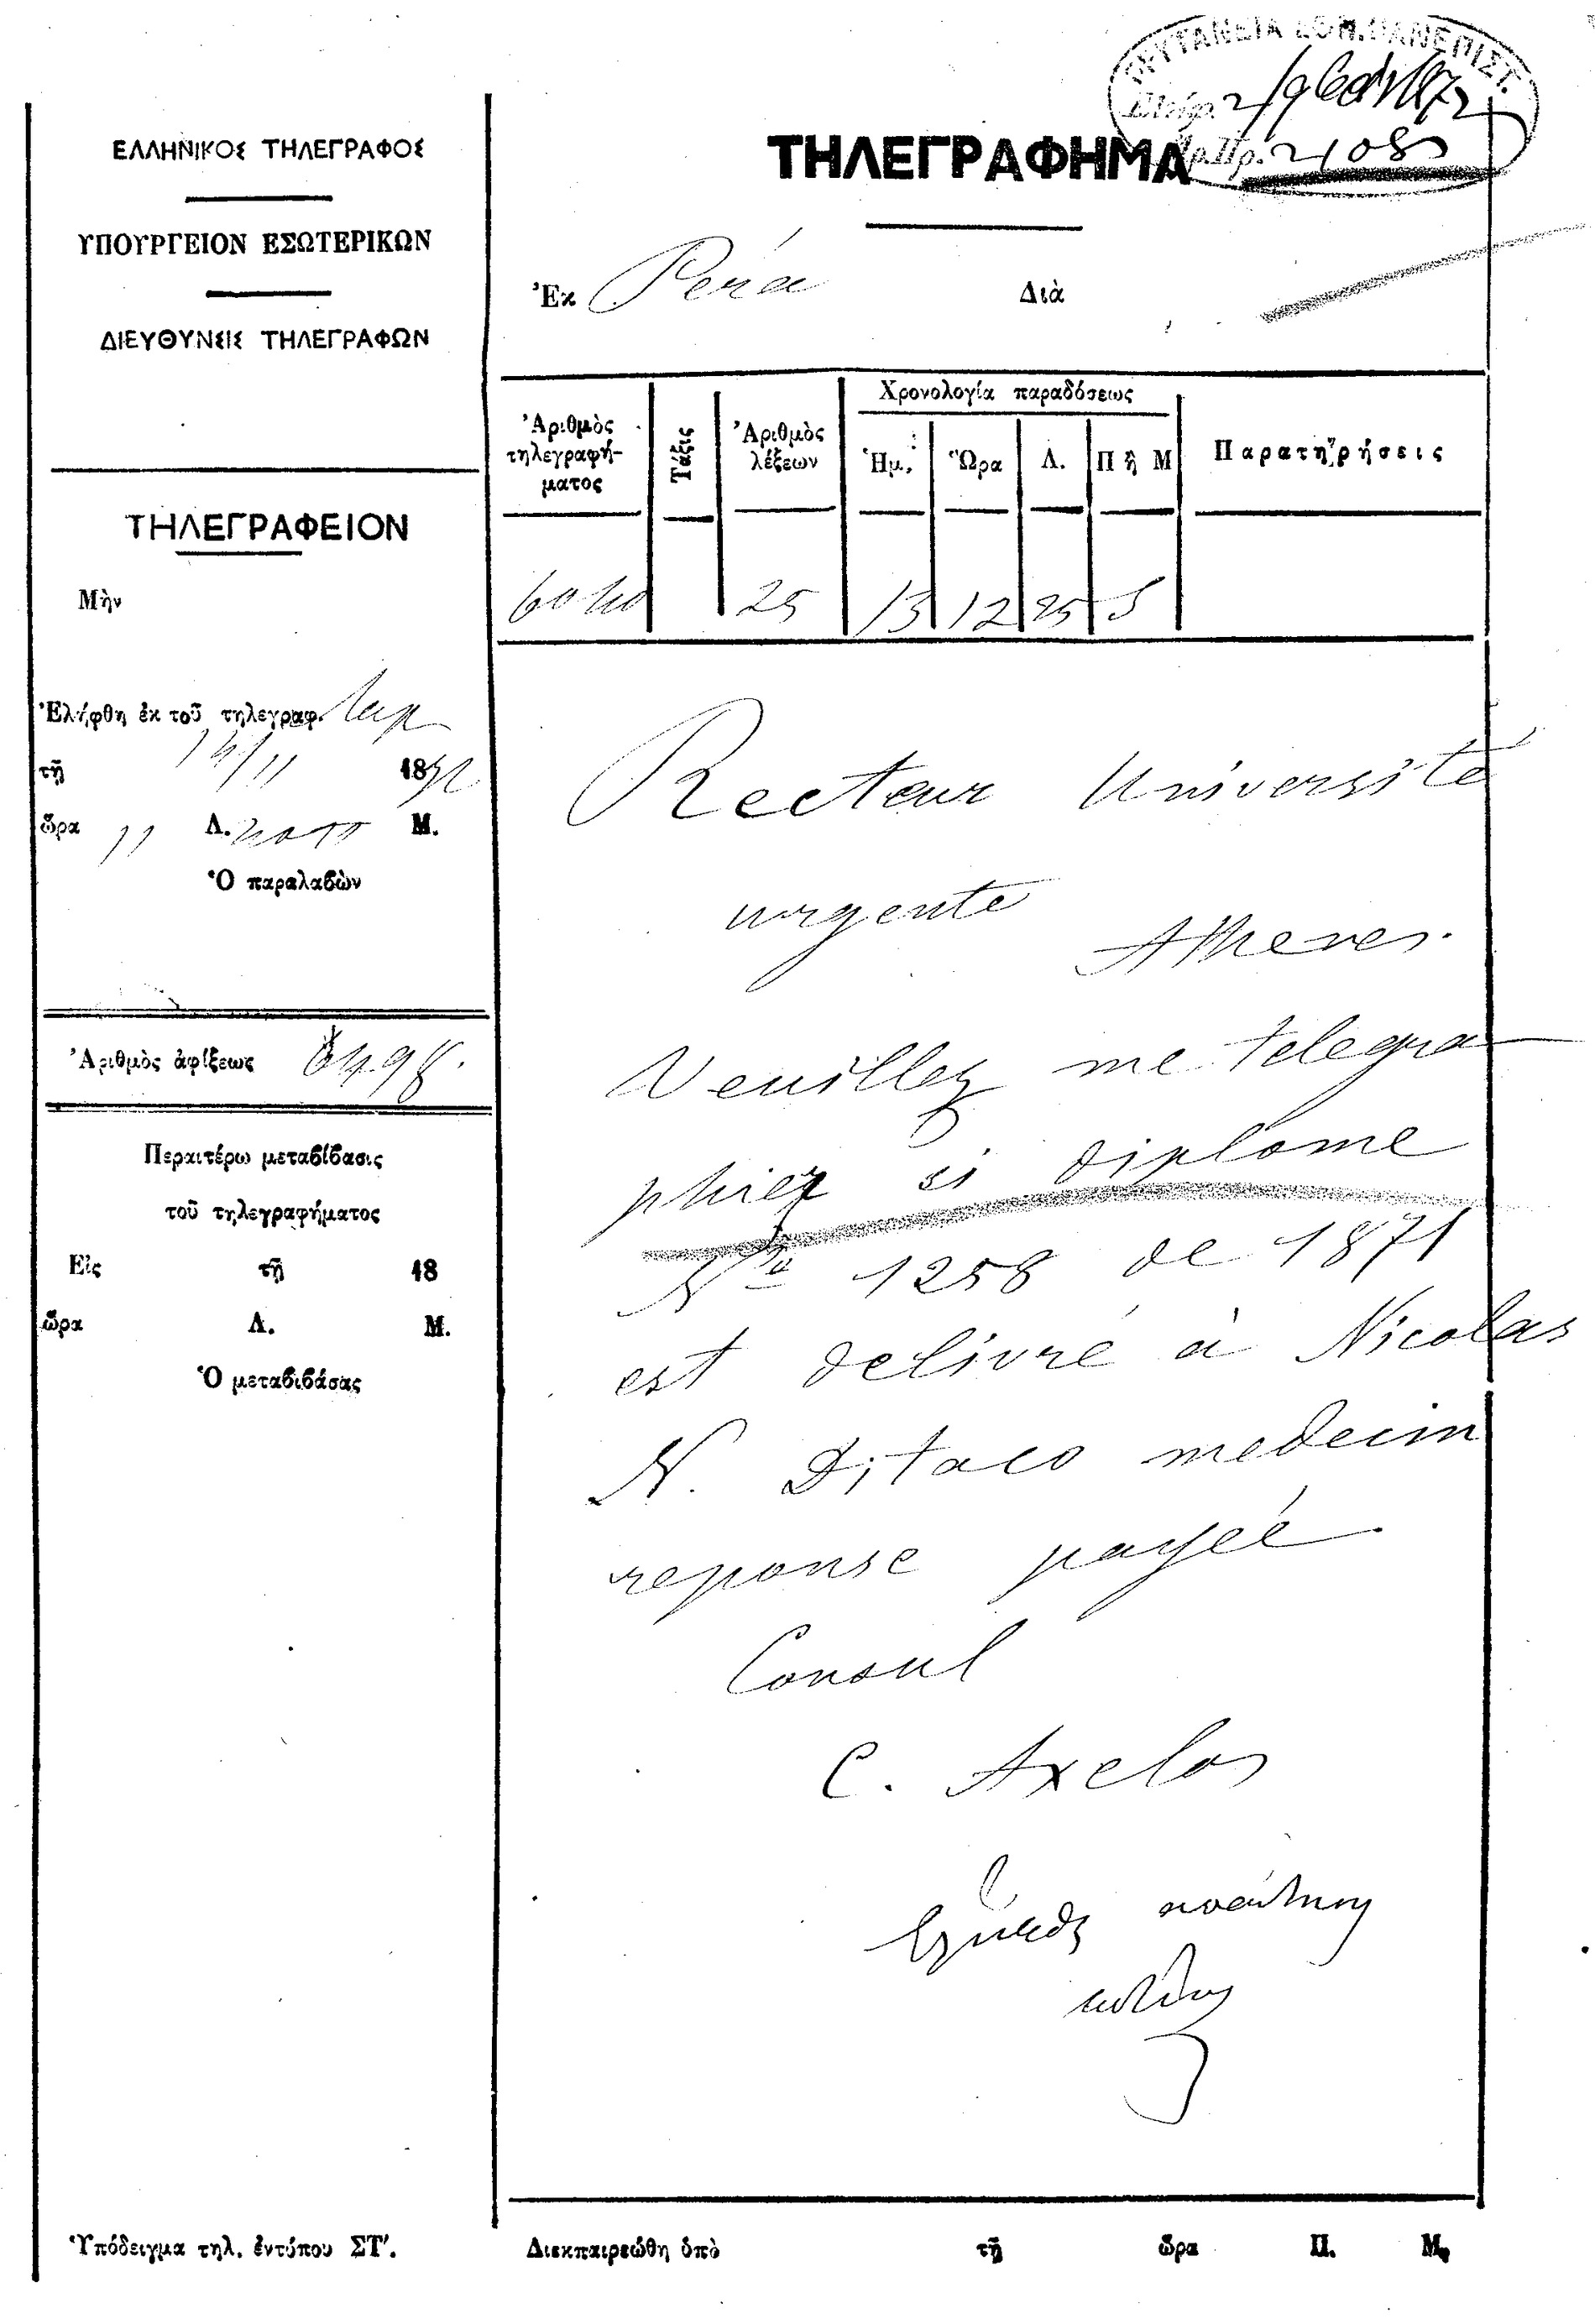 ΠΡΥΤΑΝΕΙΑ ΕΘΝ. ΠΑΝΕΠΙΣΤ.
ΕΛΛΗΝΙΚΟΣ ΤΗΛΕΓΡΑΦΟΣ
ΥΠΟΥΡΓΕΙΟΝ ΕΣΩΤΕΡΙΚΩΝ
ΔΙΕΥΘΥΝΣΙΣ ΤΗΛΕΓΡΑΦΩΝ
ΤΗΛΕΓΡΑΦΕΙΟΝ
Μὴν
Ἐλήφθη ἐκ τοῦ τηλεγραφ.
τῇ 14/11 1872
ὥρα 11 Λ. Μ.
Ὁ παραλαβὼν
Ἀριθμὸς ἀφίξεως 6498.
Περαιτέρω μεταβίβασις
τοῦ τηλεγραφήματος
Εἰς τῇ 18
ὥρα Λ. Μ.
Ὁ μεταβιβάσας
Ὑπόδειγμα τηλ. ἐντύπου ΣΤ′.
ΤΗΛΕΓΡΑΦΗΜΑ
Ἐκ Pera Διὰ
Χρονολογία παραδόσεως
Ἀριθμὸς τηλεγραφή-ματος Τάξις Ἀριθμὸς λέξεων Ἡμ. Ὥρα Λ. Π ἢ Μ Παρατηρήσεις
25 13 12 25 S
Recteur Université
urgente
Athenes.
Veuillez me telegra
phier si diplome
No 1258 de 1871
est delivré à Nicolas
N. Ditaco medecin
reponse payée.
Consul
C. Axelos
Διεκπαιρεώθη ὑπὸ τῇ ὥρα Π. Μ.